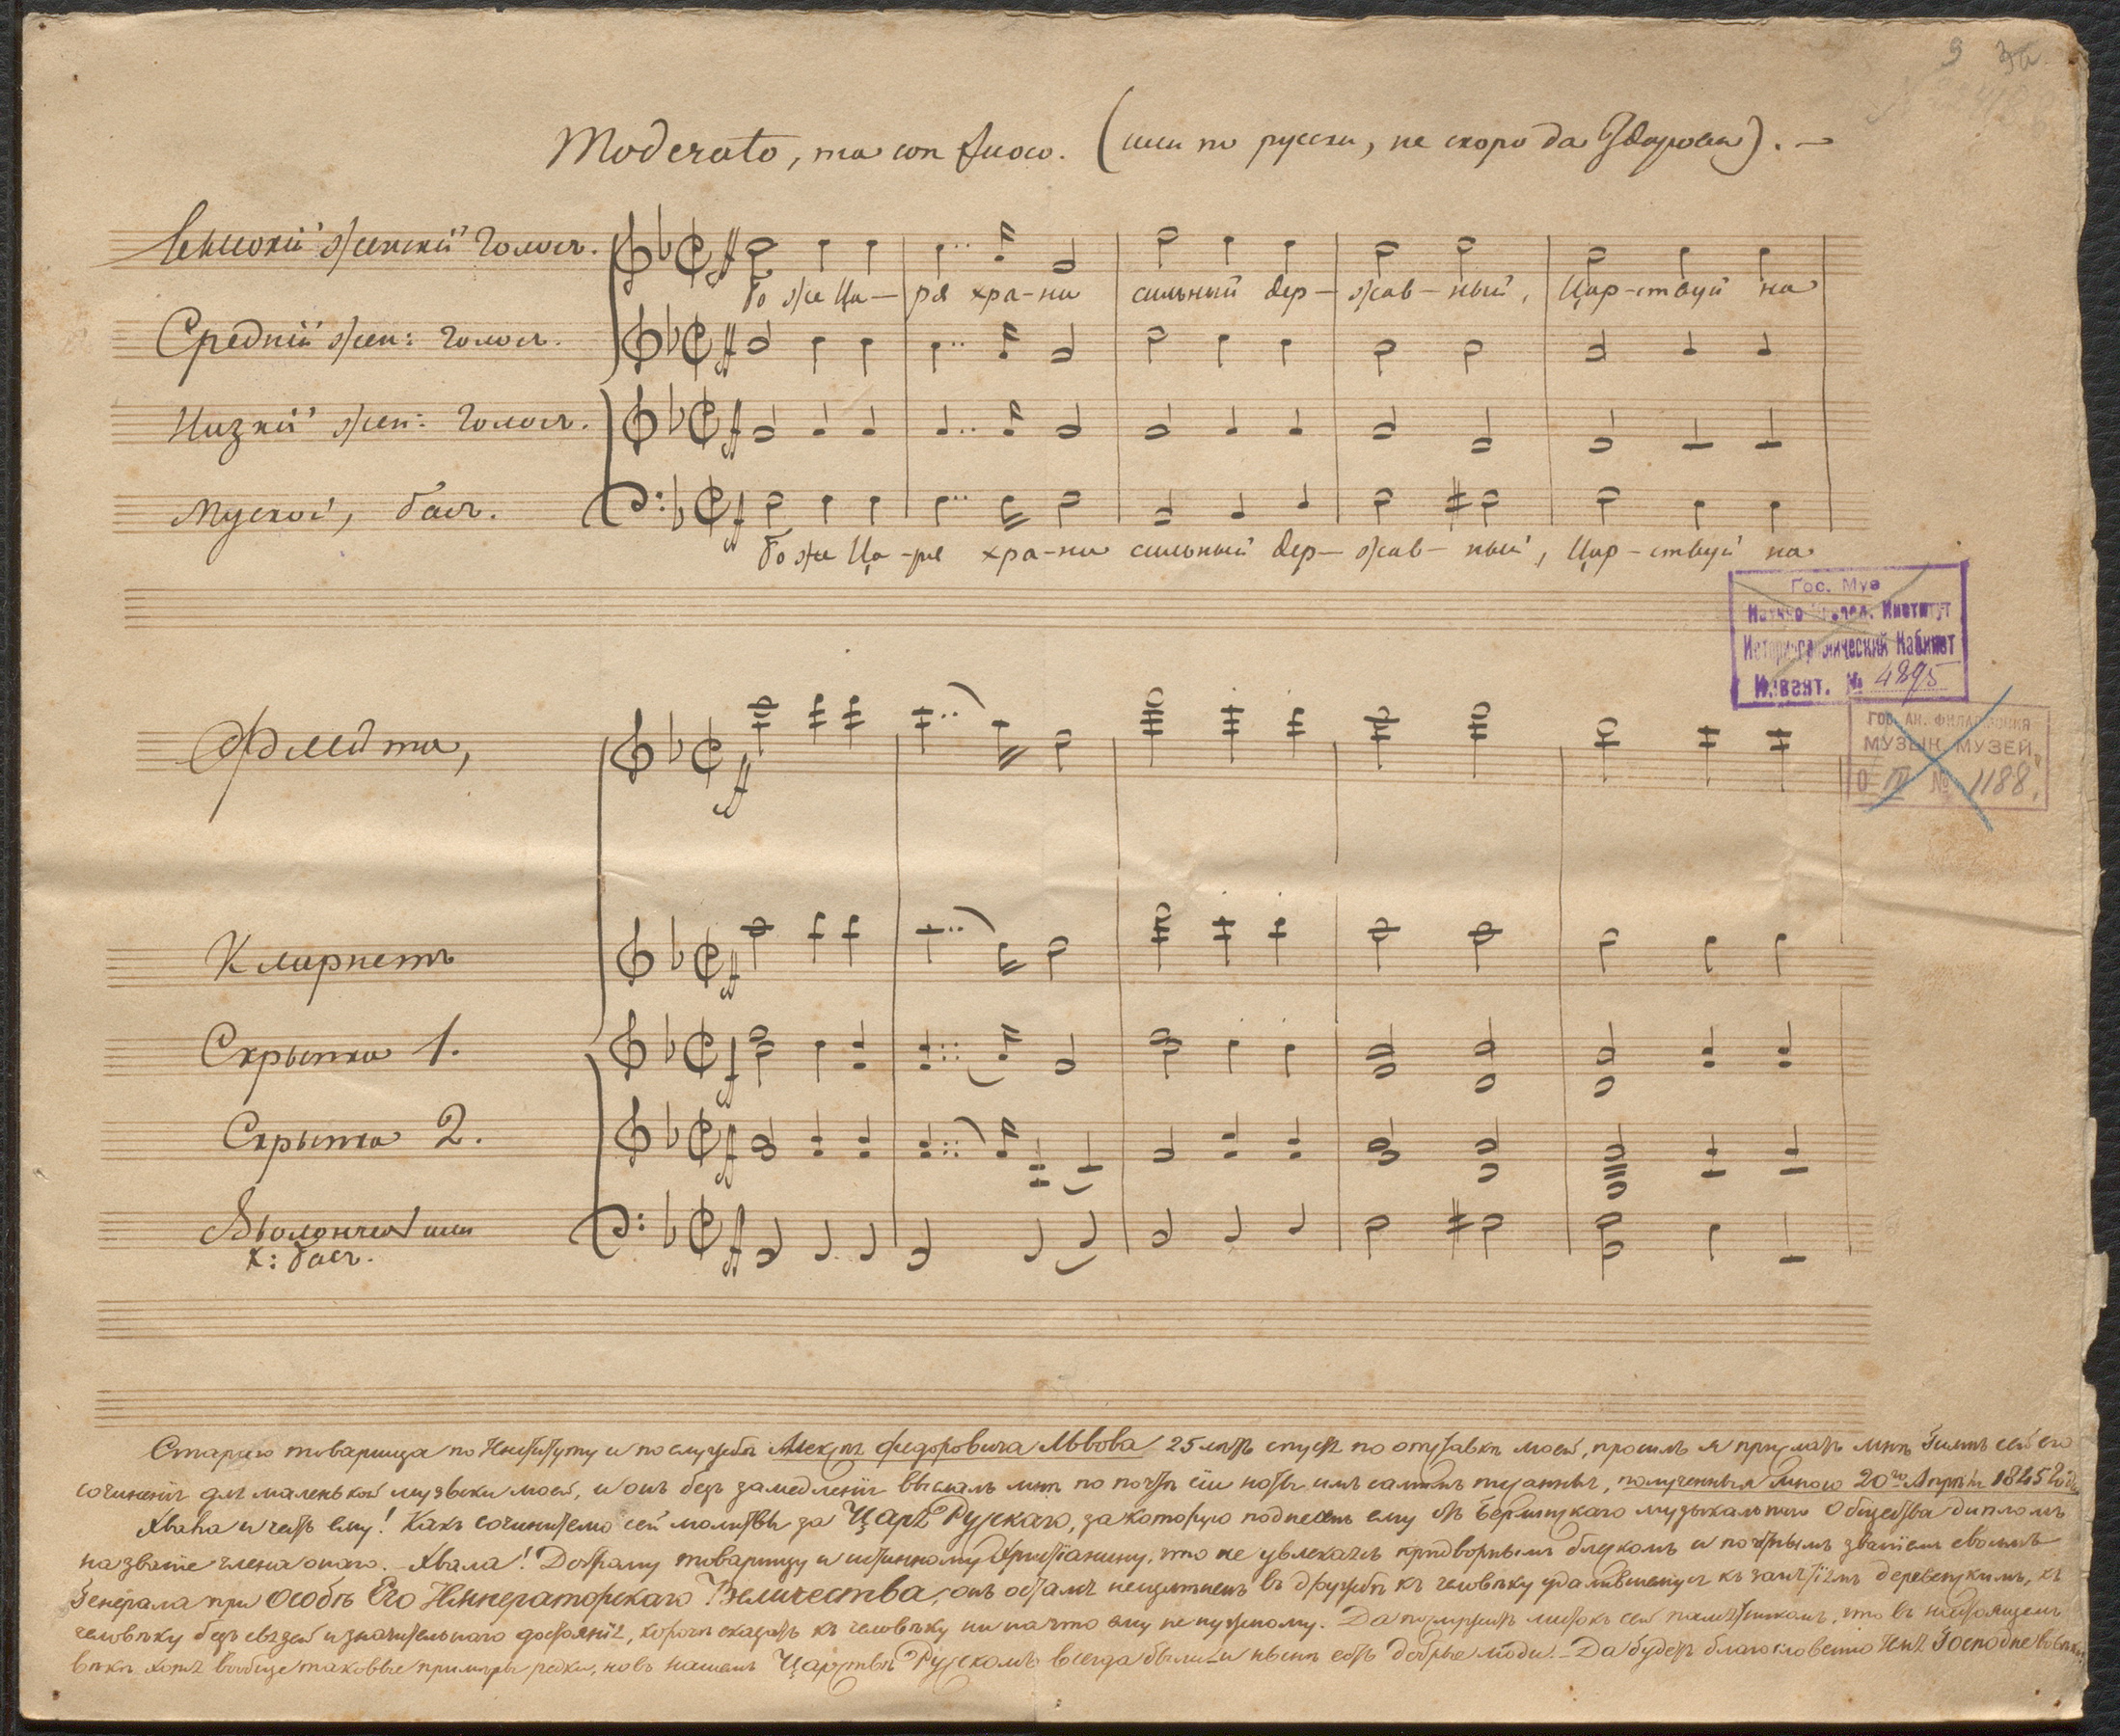 9
Moderato, ma con fuoco. (или по русски, не скоро да Здорово). —
Высокій женскій голосъ.
ff
Бо же Ца— ря хра-ни сильный дер— жав— ный, Цар-ствуй на
Средній жен: голосъ.
ff
Низкій жен: голосъ.
ff
Мускої, басъ.
ff
Бо же Ца -ря хра-ни сильный дер— жав— ный, Цар-ствуй на
Гос. Муз
Научно Институт
Кабинет
Инвент. № 4895
Флейта,
ff
ГОС. АК. ФИЛАРМОНИЯ
МУЗЫК. МУЗЕЙ
О IV № 1188.
Кларнетъ
ff
Скрыпка 1.
ff
Скрыпка 2.
ff
Віолончель или
к: басъ.
ff
Стараго товарища по Институту и по службѣ Алексѣя Федоровича Львова 25 лѣтъ спустя по отставкѣ моей, просилъ я прислать мнѣ Гимнъ сей его
сочиненія для маленькой музыки моей, и онъ безъ замедленія выслалъ мнѣ по почтѣ сіи ноты имъ самимъ писанныя, полученныя мною 20го Апрѣля 1845 Года
Хвала и честь ему! Какъ сочинителю сей молитвы за Царя Рускаго, за которую поднесенъ ему отъ Берлинскаго музыкальнаго Общества дипломъ
на званіе члена онаго. - Хвала! Доброму товарищу и истинному Христіанину, что не увлекаясь придворнымъ блескомъ и почетнымъ званіемъ своимъ
Генерала при Особѣ Его Императорскаго Величества, онъ остался неизмѣненъ въ дружбѣ къ человѣку удалившемуся къ занятіямъ деревенскимъ, къ
человѣку безъ связей и значительнаго достоянія, короче сказать къ человѣку ни на что ему не нужному. Да послужитъ листокъ сей памятникомъ, что въ настоящемъ
вѣкѣ хотя вообще таковые примѣры редки, но въ нашемъ Царствѣ Рускомъ всегда были и нынѣ есть добрые люди. - Да будетъ благословенно Имя Господне во вѣки